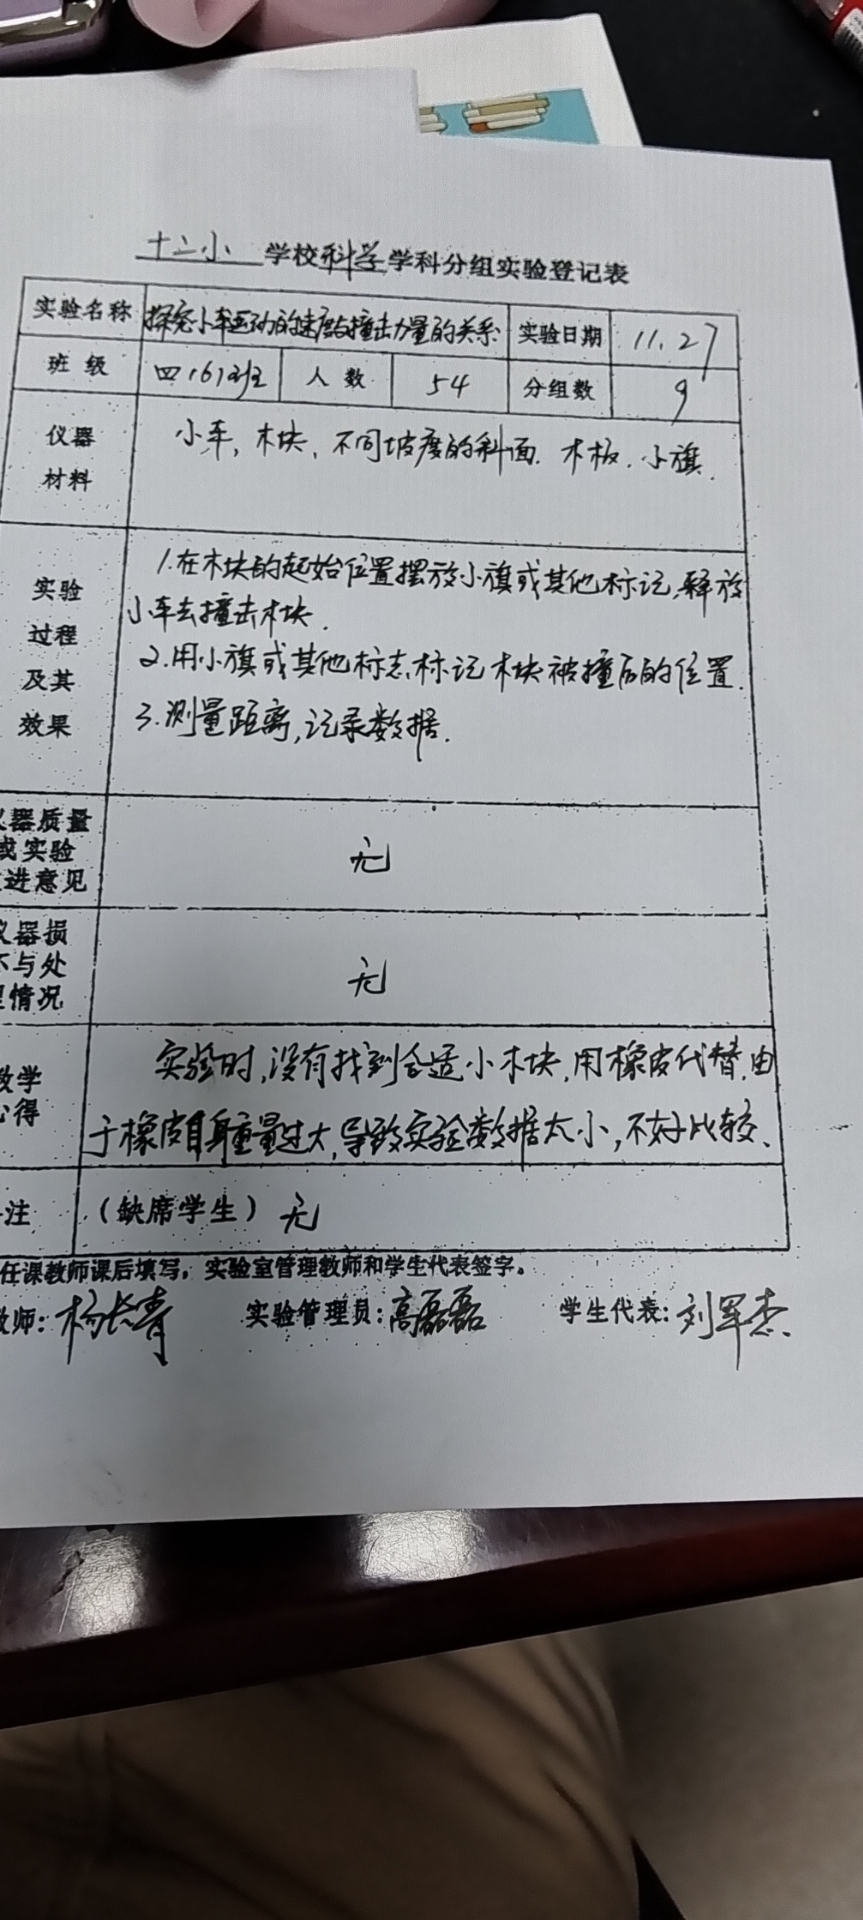 十二小 学校科学学科分组实验登记表
实验名称 探究小车运动的速度与撞击力量的关系 实验日期 11.27
班级 四(6)班 人数 54 分组数 9
仪器 小车,木块,不同坡度的斜面.木板.小旗.
材料
1.在木块的起始位置摆放小旗或其他标记,释放
实验
小车去撞击木块.
过程
2.用小旗或其他标志标记木块被撞后的位置.
及其
3.测量距离,记录数据.
效果
器质量
或实验
进意见
无
器损
与处
情况
无
实验时,没有找到合适小木块,用橡皮代替.由
教学
心得
于橡皮自身重量过大,导致实验数据太小,不好比较、
注 (缺席学生)无
任课教师课后填写,实验室管理教师和学生代表签字。
教师:杨长青 实验管理员:高磊磊 学生代表:刘军杰